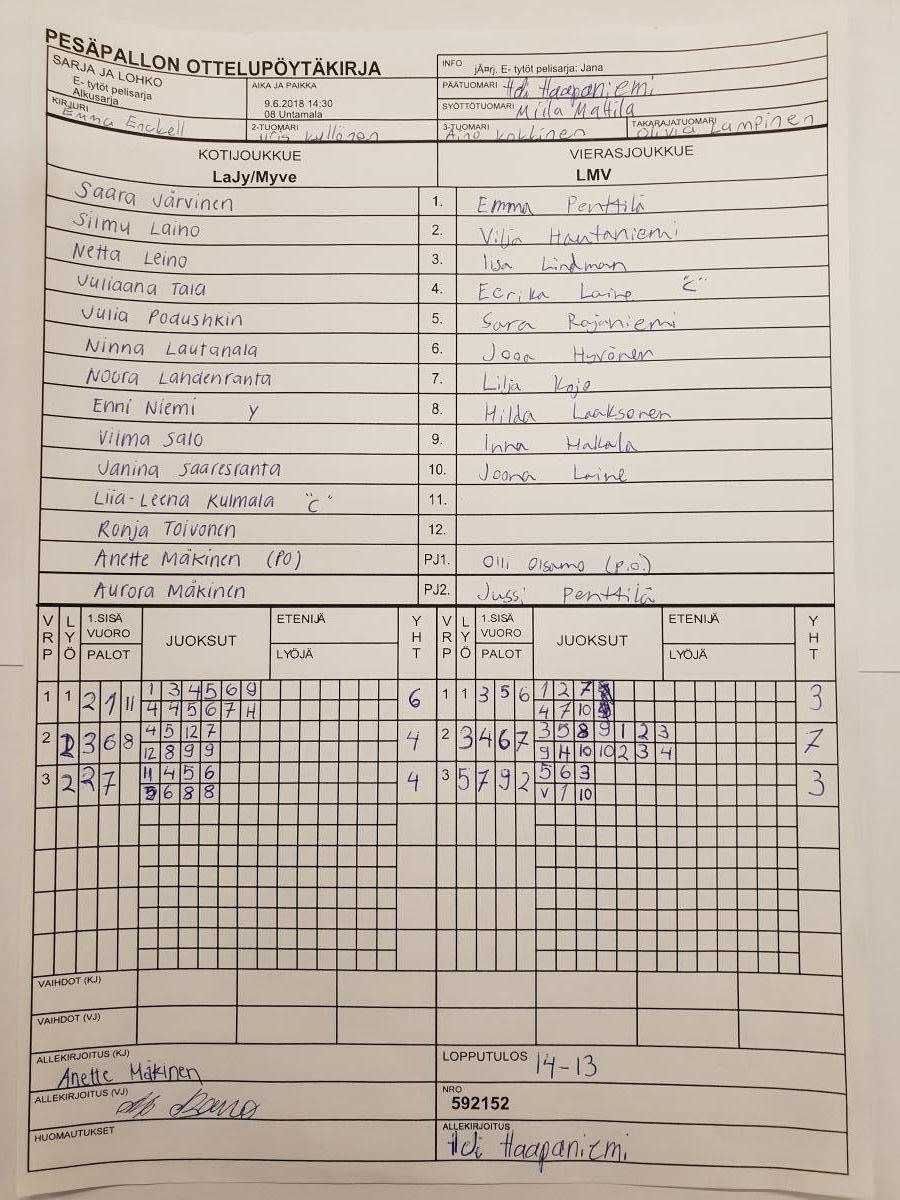 PESÄPALLON OTTELUPÖYTÄKIRJA
SARJA JA LOHKO
E- tytöt pelisarja
Alkusarja
AIKA JA PAIKKA
9.6.2018 14:30
08 Untamala
INFO jÄ¤rj. E- tytöt pelisarja: Jana
PÄÄTUOMARI Heli Haapaniemi
SYÖTTÖTUOMARI Miila Mattila
KIRJURI Emma Enckell
2-TUOMARI Iiris Kyllönen
3-TUOMARI Aino Kokkinen
TAKARAJATUOMARI Olivia Lampinen
KOTIJOUKKUE VIERASJOUKKUE
LaJy/Myve LMV
Saara Järvinen 1. Emma Penttilä
Silmu Laino 2. Vilja Hautaniemi
Netta Leino 3. Iisa Lindman
Juliaana Tala 4. Eerika Laine "C"
Julia Podushkin 5. Sara Rajaniemi
Ninna Lautanala 6. Hyvönen
Noora Lahdenranta 7. Lilja Kojo
Enni Niemi y 8. Hilda Laaksonen
Vilma Salo 9. Inna Hakala
Janina Saaresranta 10. Joona Laine
Liia-Leena Kulmala "C" 11.
Ronja Toivonen 12.
Anette Mäkinen (PO) PJ1. Olli (p.o.)
Aurora Mäkinen PJ2. Jussi Penttilä
VRP LYÖ 1.SISÄ VUORO PALOT JUOKSUT ETENIJÄ LYÖJÄ YHT VRP LYÖ 1.SISÄ VUORO PALOT JUOKSUT ETENIJÄ LYÖJÄ YHT
1 1 2 1 11 1 3 4 5 6 9 6 1 1 3 5 6 1 2 7 3
4 4 5 6 7 H 4 7 10
2 2 3 6 8 4 5 12 7 4 2 3 4 6 7 3 5 8 9 1 2 3 7
12 8 9 9 9 H 10 10 2 3 4
3 2 2 7 11 4 5 6 4 3 5 7 9 2 5 6 3 3
5 6 8 8 V 1 10
VAIHDOT (KJ)
VAIHDOT (VJ)
ALLEKIRJOITUS (KJ) Anette Mäkinen
LOPPUTULOS 14-13
ALLEKIRJOITUS (VJ)
NRO
592152
HUOMAUTUKSET
ALLEKIRJOITUS
Heli Haapaniemi